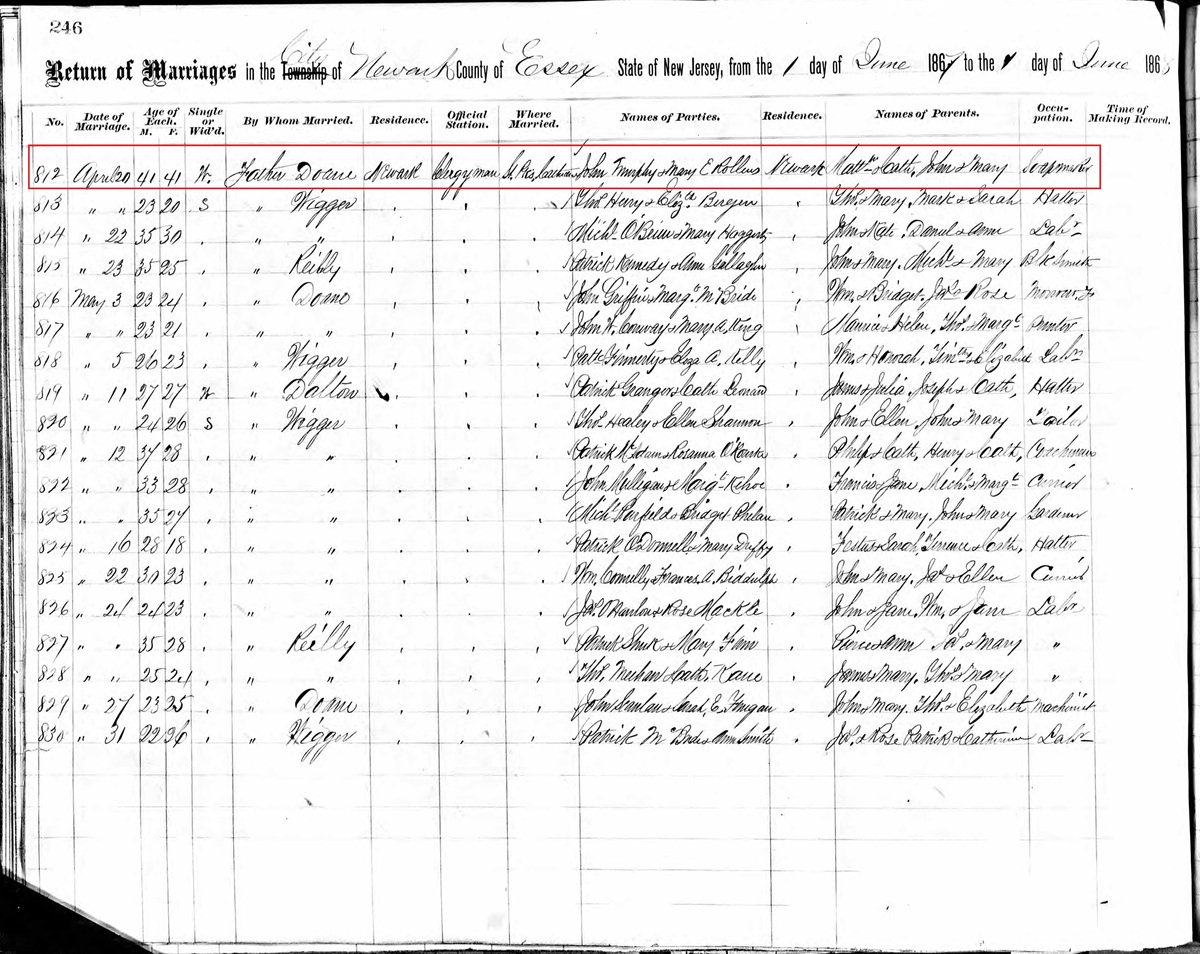 246
Return of Marriages in the Township City of Newark County of Essex State of New Jersey, from the 1 day of June 1867 to the 1 day of June 1868
No. Date of Marriage. Age of Each. M. F. Single or Wid'd. By Whom Married. Residence. Official Station. Where Married. Names of Parties. Residence. Names of Parents. Occupation. Time of Making Record.
812 April 20 41 41 W. Father Doane Newark Clergyman St. Pks. John Murphy & Mary E Rollins Newark Matt & Cath, John & Mary Soapmaker
813 " " 23 20 S " Wigger Thos Henry & Eliza Bergen Thos & Mary, Mark & Sarah Hatter
814 " 22 35 30 " " Michl O'Beirn & Mary Haggerty John & Kate, Daniel & Anne Labr
815 " 23 35 25 " Reilly Patrick Kennedy & Anne Gallagher John & Mary, Michl & Mary Blksmith
816 May 3 23 24 " Doane John Griffin & Margt McBride Wm & Bridget, Jas & Rose
817 " " 23 21 " " John W. Conway & Mary A. King Maurice & Helen, Thos & Margt Printer
818 " 5 26 23 " Wigger Patk Finnerty & Eliza A. Kelly Wm & Honorah, Timthy & Elizabeth Labr
819 " 11 27 27 W " Dalton Patrick Grangor & Cath Leonard James & Julia, Joseph & Cath, Hatter
820 " " 24 26 S " Wigger Thos Healey & Ellen Shannon John & Ellen, John & Mary Tailor
821 " 12 34 28 " " Patrick McAdam & Rosanna O'Rourke Philip & Cath, Henry & Cath, Coachman
822 " " 33 28 " " John Mulligan & Margt Kehoe Francis & Jane, Michl & Margt Currier
823 " " 35 27 " " Michl & Bridget Phelan Patrick & Mary, John & Mary Gardener
824 " 16 28 18 " " Patrick O'Donnell & Mary Duffy Festus & Sarah, Terence & Cath, Hatter
825 " 22 30 23 " " Wm, Connelly & Frances, A, Biddulph John & Mary, Jas & Ellen Currier
826 " 24 24 23 " " Jas. O'Hanlon & Rose Mackle John & Jane, Wm, & Jane Labr
827 " " 35 28 " Reilly Patrick & Mary Finn Pierce & Ann Jas. & Mary "
828 " " 25 24 " " Thos, Meehan & Cath, Kane James & Mary, Thos & Mary "
829 " 27 23 25 " Doane John Scanlan & Sarah, E, Finegan John & Mary, Thos, & Elizabeth Machinist
830 " 31 22 26 " Wigger Patrick McBride & Ann Smith Jas. & Rose Patrick & Catherine Labr